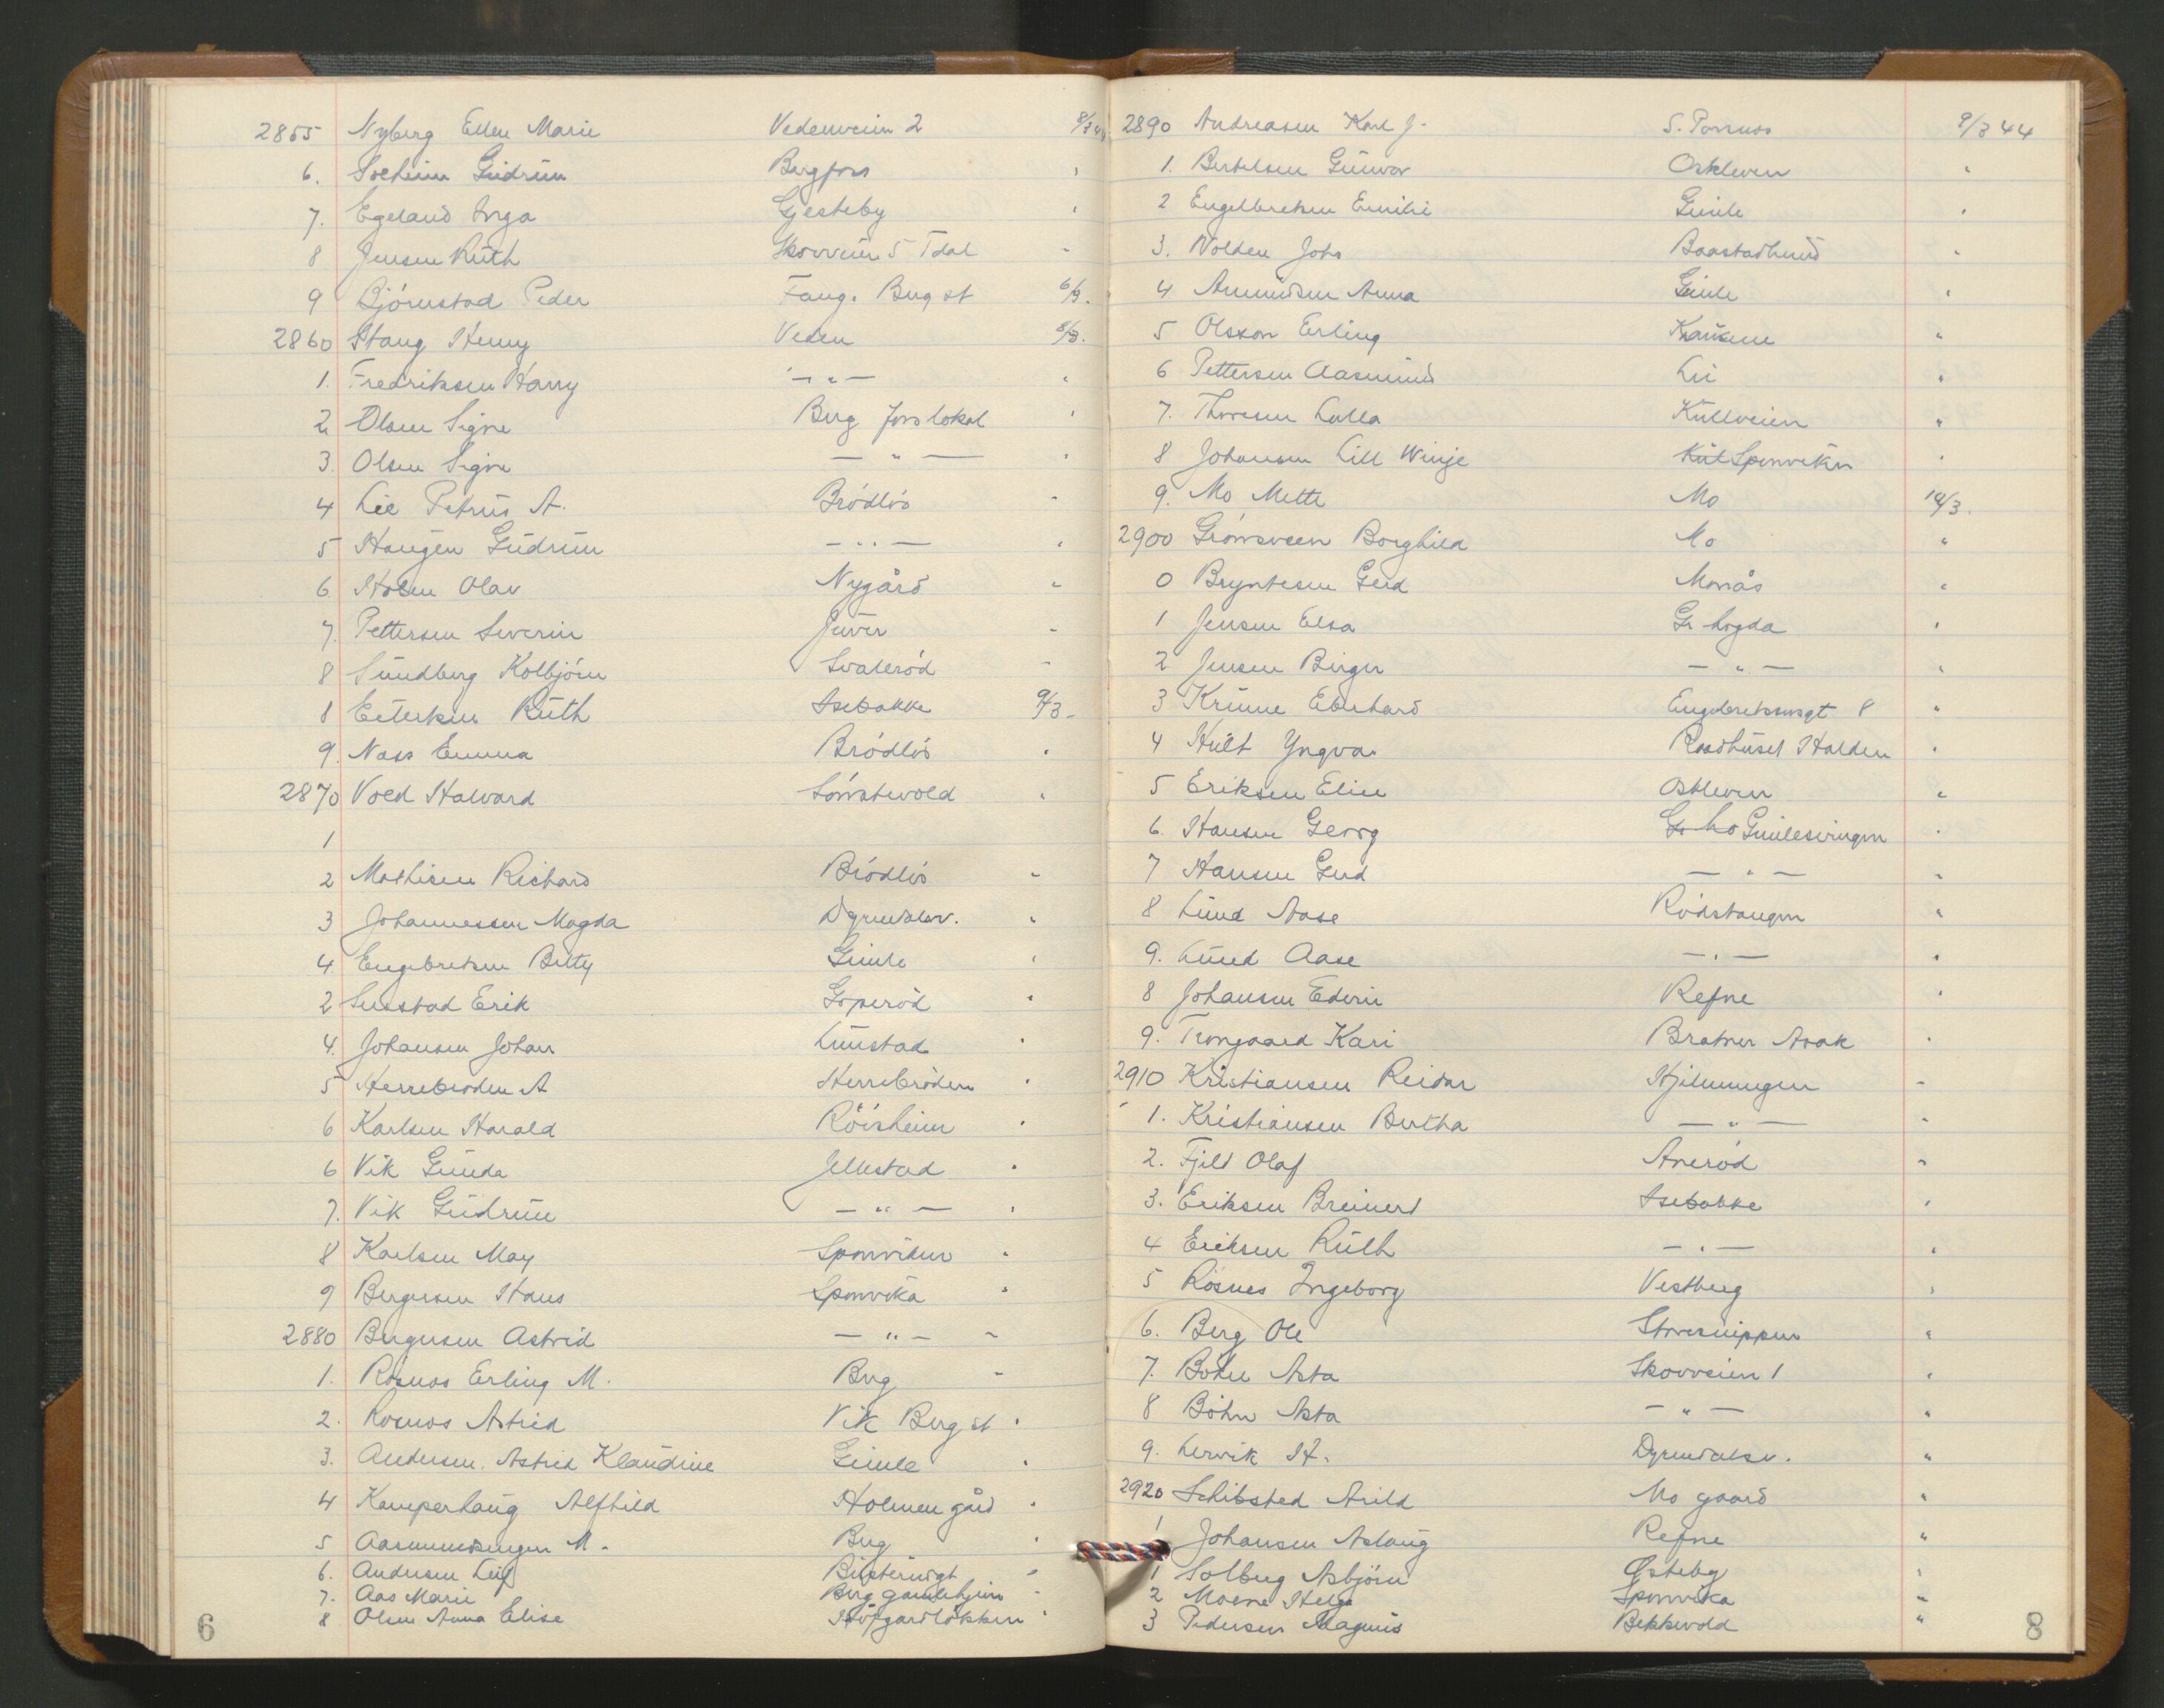 2855 Nyberg Ellen Marie Vedenveien 2 8/3 44
6. Solheim Gudrun Bergfoss "
7. Egeland Inga Gjesteby "
8 Jensen Ruth Skovveien 5 Tdal "
9 Björnstad Peder Fang. Berg st 6/3.
2860 Stang Henny Veden 8/3.
1. Fredriksen Harry - " - "
2 Olsen Signe Berg fors lokal "
3. Olsen Signe - " - "
4 Lie Petrus A. Brödlös "
5 Haugen Gudrun - " - "
6 Holm Olav Nygård "
7. Pettersen Severin Juver "
8 Sundberg Kolbjörn Svaleröd "
8 Ruth Isebakke 9/3-
9. Nass Emma Brödlös "
2870 Vold Halvard "
1
2 Mathisen Richard Brödlös "
3 Johannessen Magda Dyrendalsv. "
4. Engebretsen Betty Gimle "
2 Erik Goperöd "
4. Johansen Johan Lunstad "
5 Herrebröden A Herrebröden "
6 Karlsen Harald Röisheim "
6 Vik Gunda Jellestad "
7. Vik Gudrun - " - "
8 Karlsen May Sponviken "
9 Bergersen Hans Sponvika "
2880 Bergersen Astrid - " - "
1. Rosnes Erling M. Berg "
2. Rosnes Astrid Vik Berg st "
3. Andersen. Astrid Klaudine Gimle "
4 Kamperhaug Alfhild Holmen gård "
5 Aasmundsengen M. Berg "
6. Andersen Leif "
7. Aas Marie Berg gamlehjem "
8 Olsen Anna Elise "
6
2890 Andreasen Karl J. S. 9/3 44
1. Bertelsen Gunvor Oskleven "
2 Engelbretsen Emilie Gimle "
3. Wolden Johs Baastadlund "
4 Amundsen Anna Gimle "
5 Olsson Erling "
6 Pettersen Aasmund Lii "
7. Thoresen Lalla Kullveien "
8 Johansen Lill Winje Kul Sponviken "
9. Mo Mette Mo 10/3.
2900 Grönsveen Borghild Mo "
0 Bryntesen Gerd Monås "
1 Jensen Elsa Gr. Logda "
2 Jensen Birger - " - "
3 Krume Eberhard Engebretsensgt 8 "
4 Hult Yngvar Raadhuset Halden "
5 Eriksen Eline Oskleven "
6. Hansen Georg Gr Lo Gimlesvingen "
7 Hansen Gerd - " - "
8 Lund Aase Rödstangen "
9. Lund Aase - " - "
8 Johansen Edvin Refne "
9. Trongaard Kari Bratner Asak "
2910 Kristiansen Reidar Hjelmungen "
1. Kristiansen Bertha - " - "
2. Fjeld Olaf Aneröd "
3. Eriksen Breinert Isebakke "
4 Eriksen Ruth - " - "
5 Rösnes Ingeborg Vestberg "
6. Berg Ole Storesnippen "
7. Böhn Asta Skovveien 1 "
8 Böhn Asta - " - "
9. Lervik H. Dyrendalsv. "
2920 Schibsted Arild Mo gaard "
1 Johansen Aslaug Refne "
1 Solberg Asbjörn Østeby "
2 Moene Helge Sponvika "
3 Pedersen Magnus Bekkevold "
8